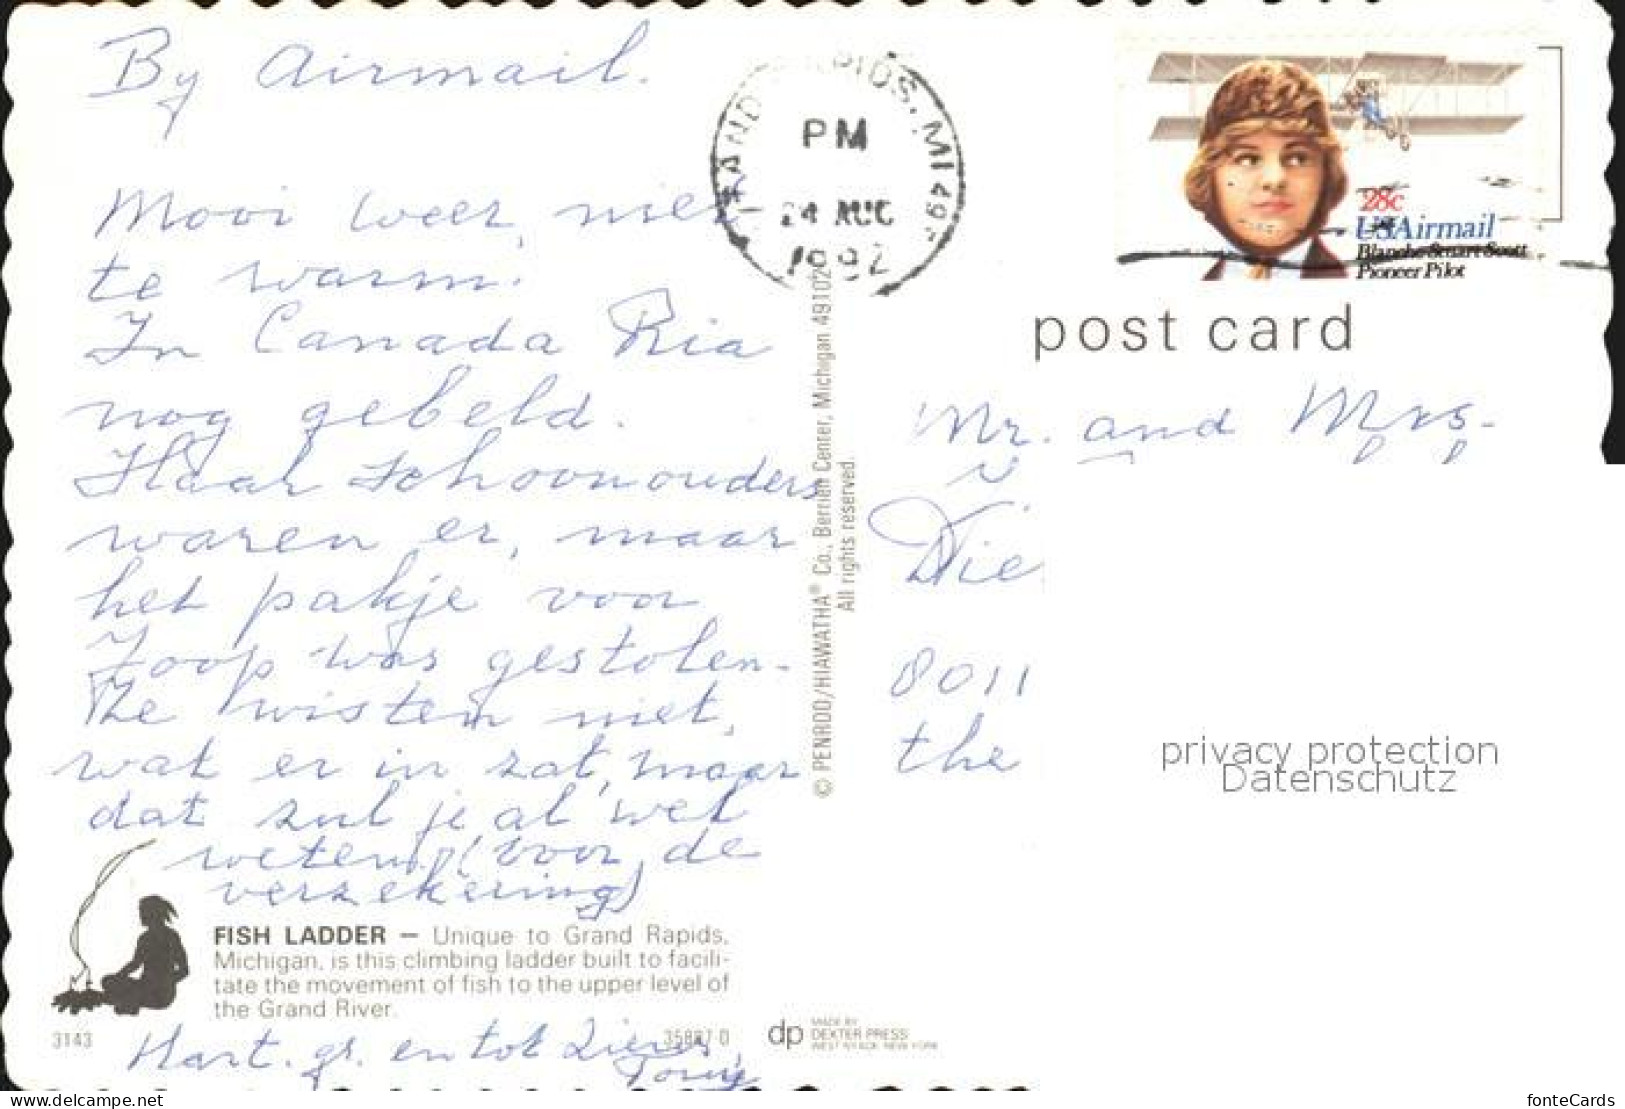 By Airmail.
Mooi weer, niet
te warm.
In Canada Ria
nog gebeld.
Haar schoonouders
waren er, maar
het pakje voor
Joop was gestolen.
We wisten niet,
wat er in zat, maar
dat zul je al wel
weten (voor de
verzekering)
FISH LADDER — Unique to Grand Rapids,
Michigan, is this climbing ladder built to facili-
tate the movement of fish to the upper level of
the Grand River.
3143
35887 D
Hart. gr. en tot ziens,
dp
MADE BY
DEXTER PRESS
WEST NYACK, NEW YORK
© PENROD/HIAWATHA® Co., Berrien Center, Michigan 49102
All rights reserved.
RAPIDS, MI 495
PM
24 AUG
1982
28c
USAirmail
Blanche Stuart Scott
Pioneer Pilot
post card
Mr. and Mrs.
Die
8011
the
privacy protection
Datenschutz
www.delcampe.net
fonteCards